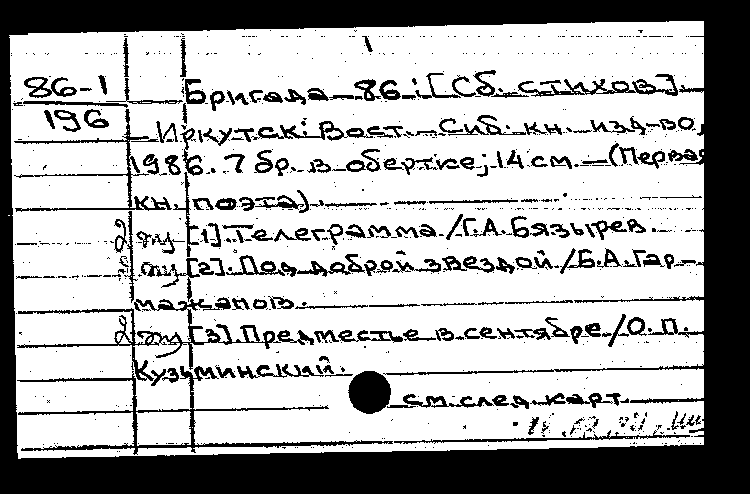 1
86-1
196
Бригада - 86 : [Сб. стихов].
- Иркутск: Вост. - Сиб. кн. изд-во,
1986. 7 бр. в обертке; 14 см. - (Первая
кн. поэта).
[1]. Телеграмма / Г.А. Бязырев.
[2]. Под доброй звездой / Б.А. Гар-
мажапов.
[3]. Предместье в сентябре / О.П.
Кузьминский.
см. след. карт